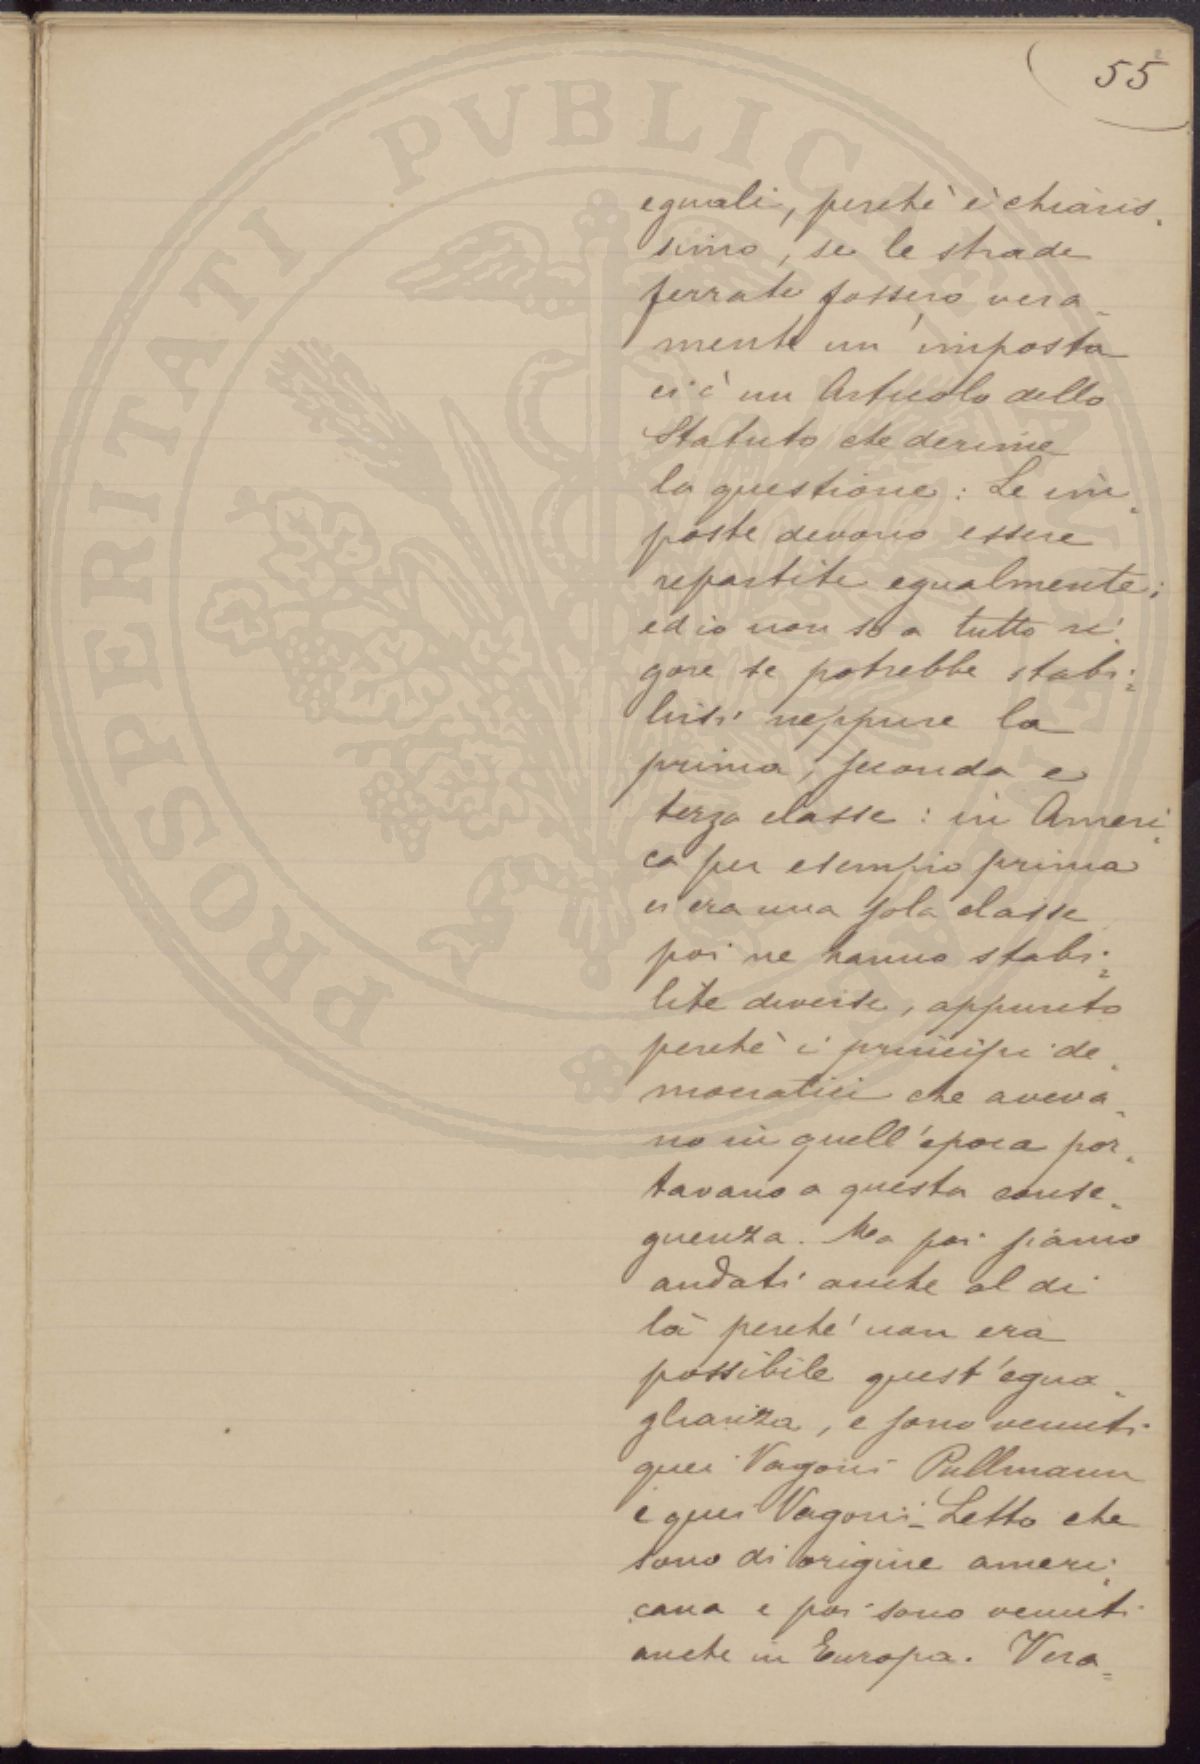 55
PROSPERITATI PVBLICAE
eguali, perchè è chiaris=
simo, se le strade
ferrate fossero vera=
mente un'imposta
ci è un Articolo dello
Statuto che derime
la questione: Le im=
poste devono essere
repartite egualmente;
ed io non so a tutto ri=
gore se potrebbe stabi=
lirsi neppure la
prima, seconda e
terza classe: in Ameri=
ca per esempio prima
ci era una sola classe
poi ne hanno stabi=
lite diverse, appunto
perchè i principi de=
mocratici che aveva=
no in quell'epoca por=
tavano a questa conse=
guenza. Ma poi siamo
andati anche al di
là perchè non era
possibile quest'egua=
glianza, e sono venuti
quei Vagoni Pullmann
e quei Vagoni-Letto che
sono di origine ameri=
cana e poi sono venuti
anche in Europa. Vera=